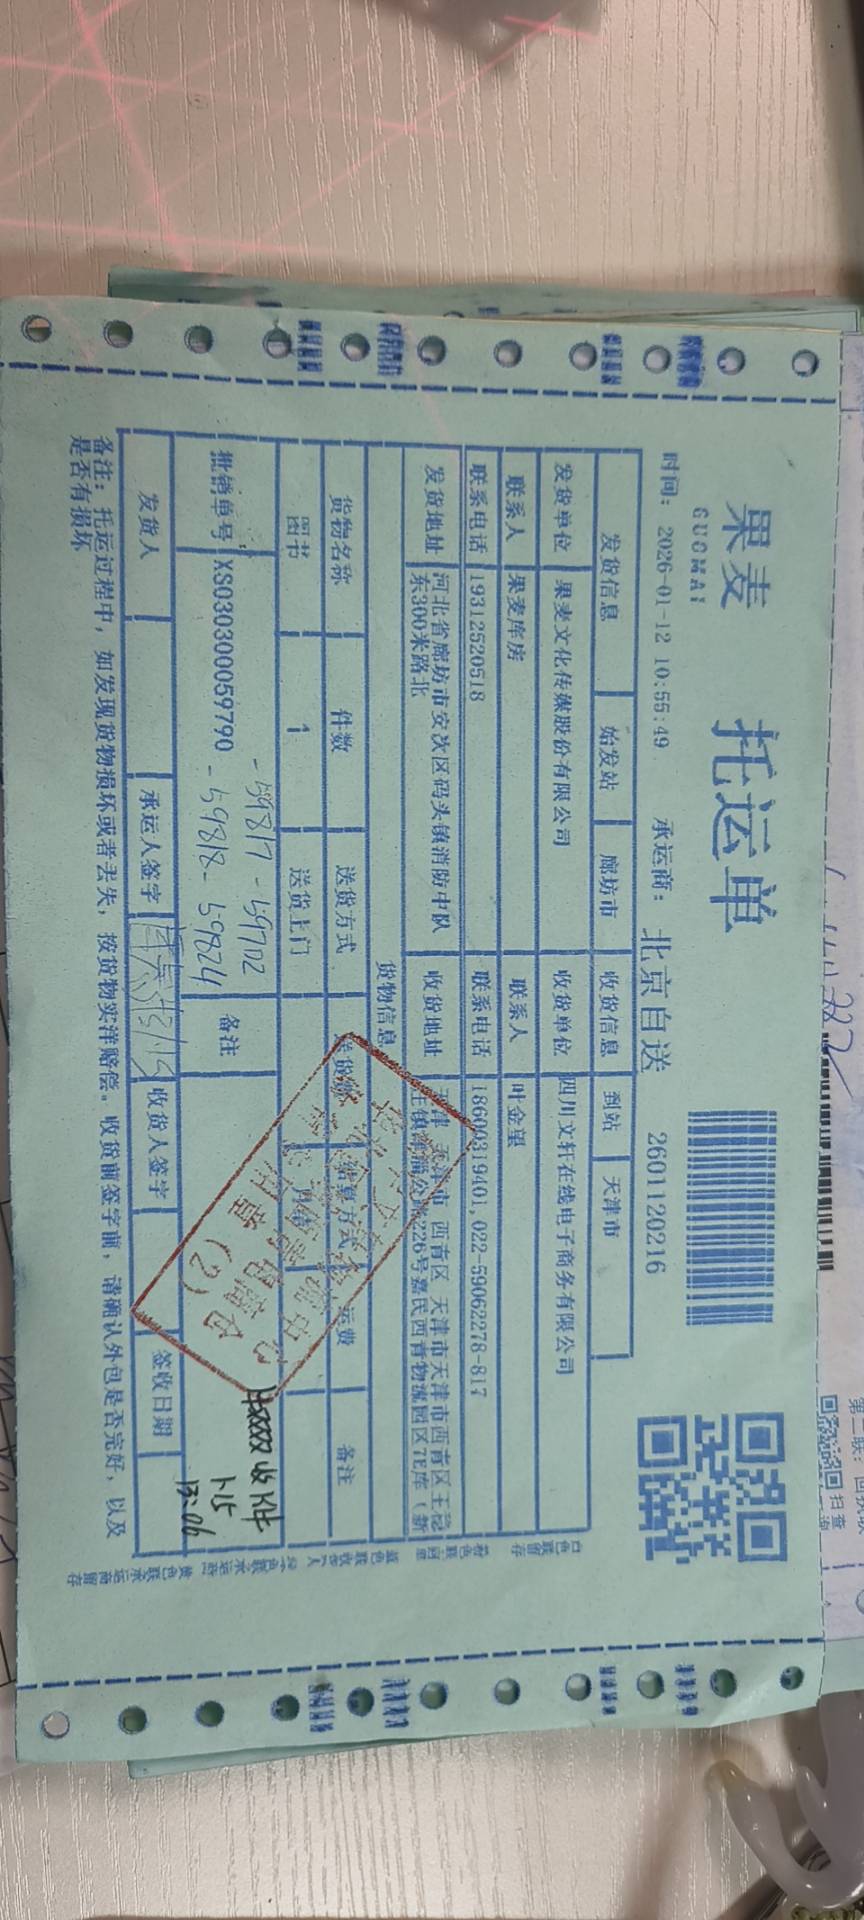 果麦
GUOMAI
托运单
时间： 2026-01-12 10:55:49 承运商： 北京自送 2601120216
发货信息 始发站 廊坊市 收货信息 到站 天津市
发货单位 果麦文化传媒股份有限公司 收货单位 四川文轩在线电子商务有限公司
联系人 果麦库房 联系人 叶金望
联系电话 19312520518 联系电话 18600319401,022-59062278-817
发货地址 河北省廊坊市安次区码头镇消防中队东300米路北 收货地址 天津 天津市 西青区 天津市天津市西青区王稳庄镇津淄公路226号嘉民西青物流园区7E库（新
货物信息
货物名称 件数 送货方式 送货费 结算方式 运费 备注
图书 1 送货上门 月结
批销单号： XS030300059790 -59817 -59702
-59818- 59824
备注
收 件
1.15
13:06
发货人 承运人签字 收货人签字 签收日期
备注：托运过程中，如发现货物损坏或者丢失，按货物实洋赔偿。收货前签字前，请确认外包是否完好，以及
是否有损坏
中心
(2)
扫查